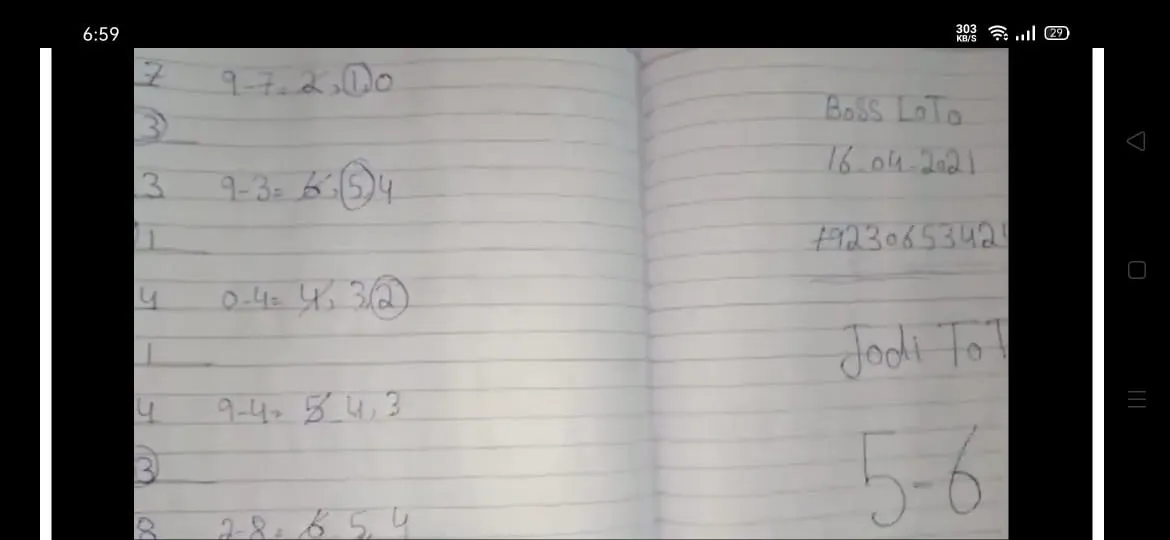 6:59
303
KB/S
29
7 9-7= 2, 1, 0
3
3 9-3= 6, 5, 4
1
4 0-4= 4, 3, 2
1
4 9-4= 5, 4, 3
3
8 2-8= 6, 5, 4
Boss LoTo
16-04-2021
+9230653424
Jodi ToT
5-6